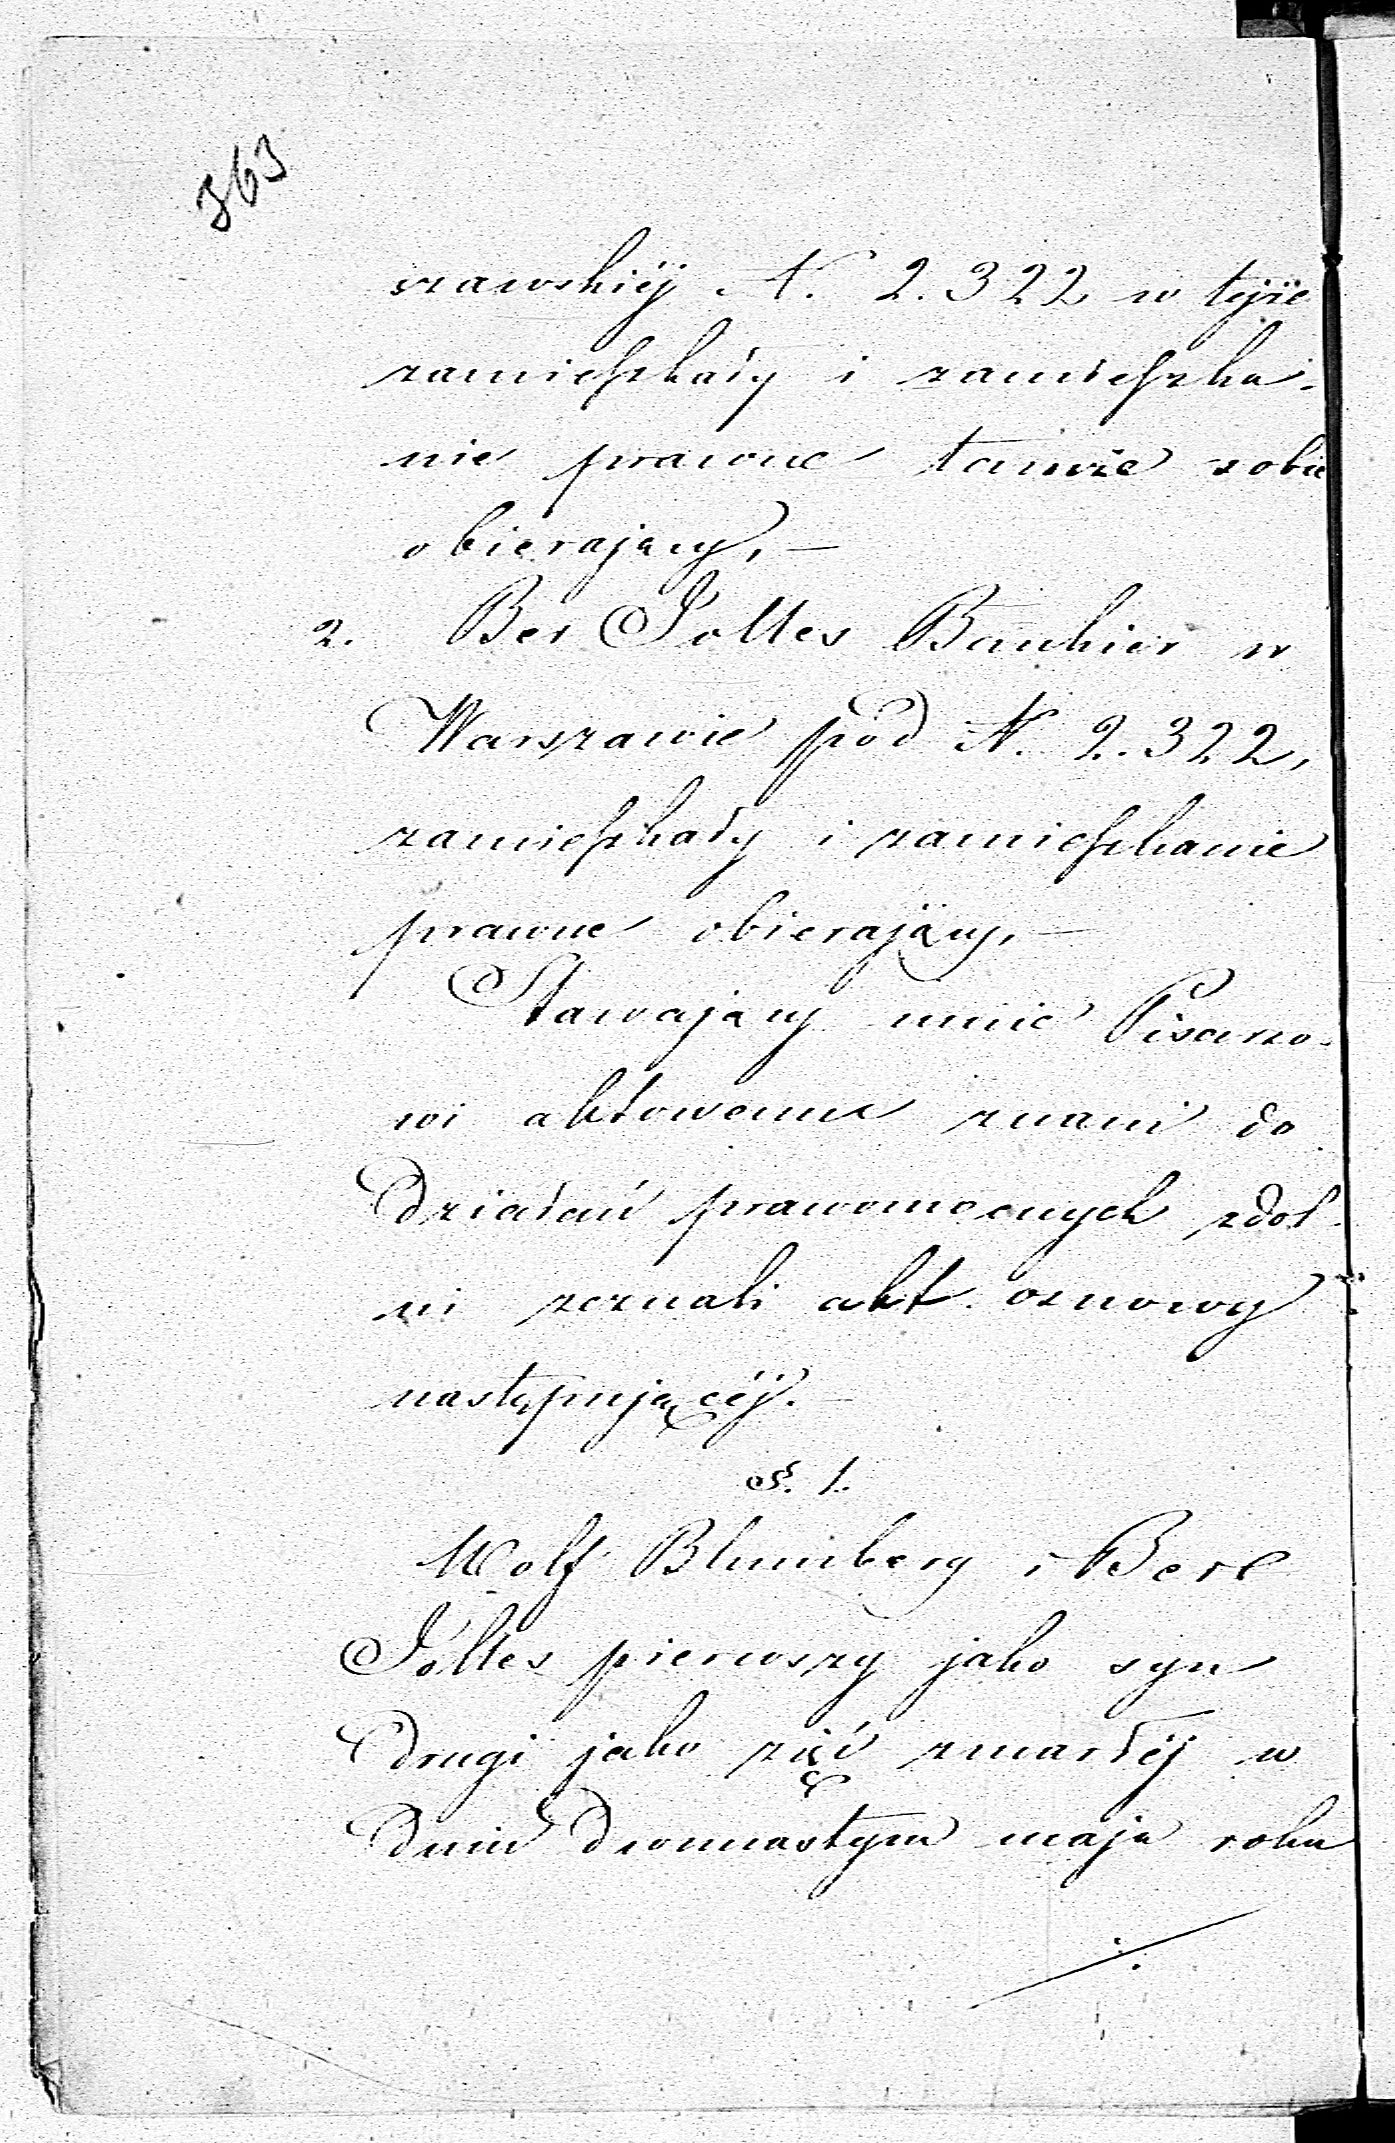 363
szawskiéj N. 2.322 w tejże
zamieszkały i zamieszka-
nie prawne tamże sobie
obierający, —
2. Ber Joltes Bankier w
Warszawie pod N. 2.322,
zamieszkały i zamieszkanie
prawne obierający, —
Stawający mnie Pisarzo-
wi aktowemu znani do
Działań prawomocnych zdol-
ni zeznali akt osnowy
następującéj. —
§. 1.
Wolf Blumberg i Bere
Jóltes pierwszy jako syn
Drugi jako zięć zmarłéj w
Dniu Dwunastym maja roku
./.